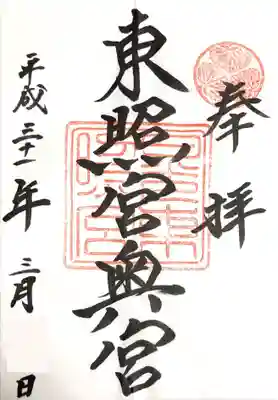 奉拝
東照宮奥宮
平成三十一年三月 日